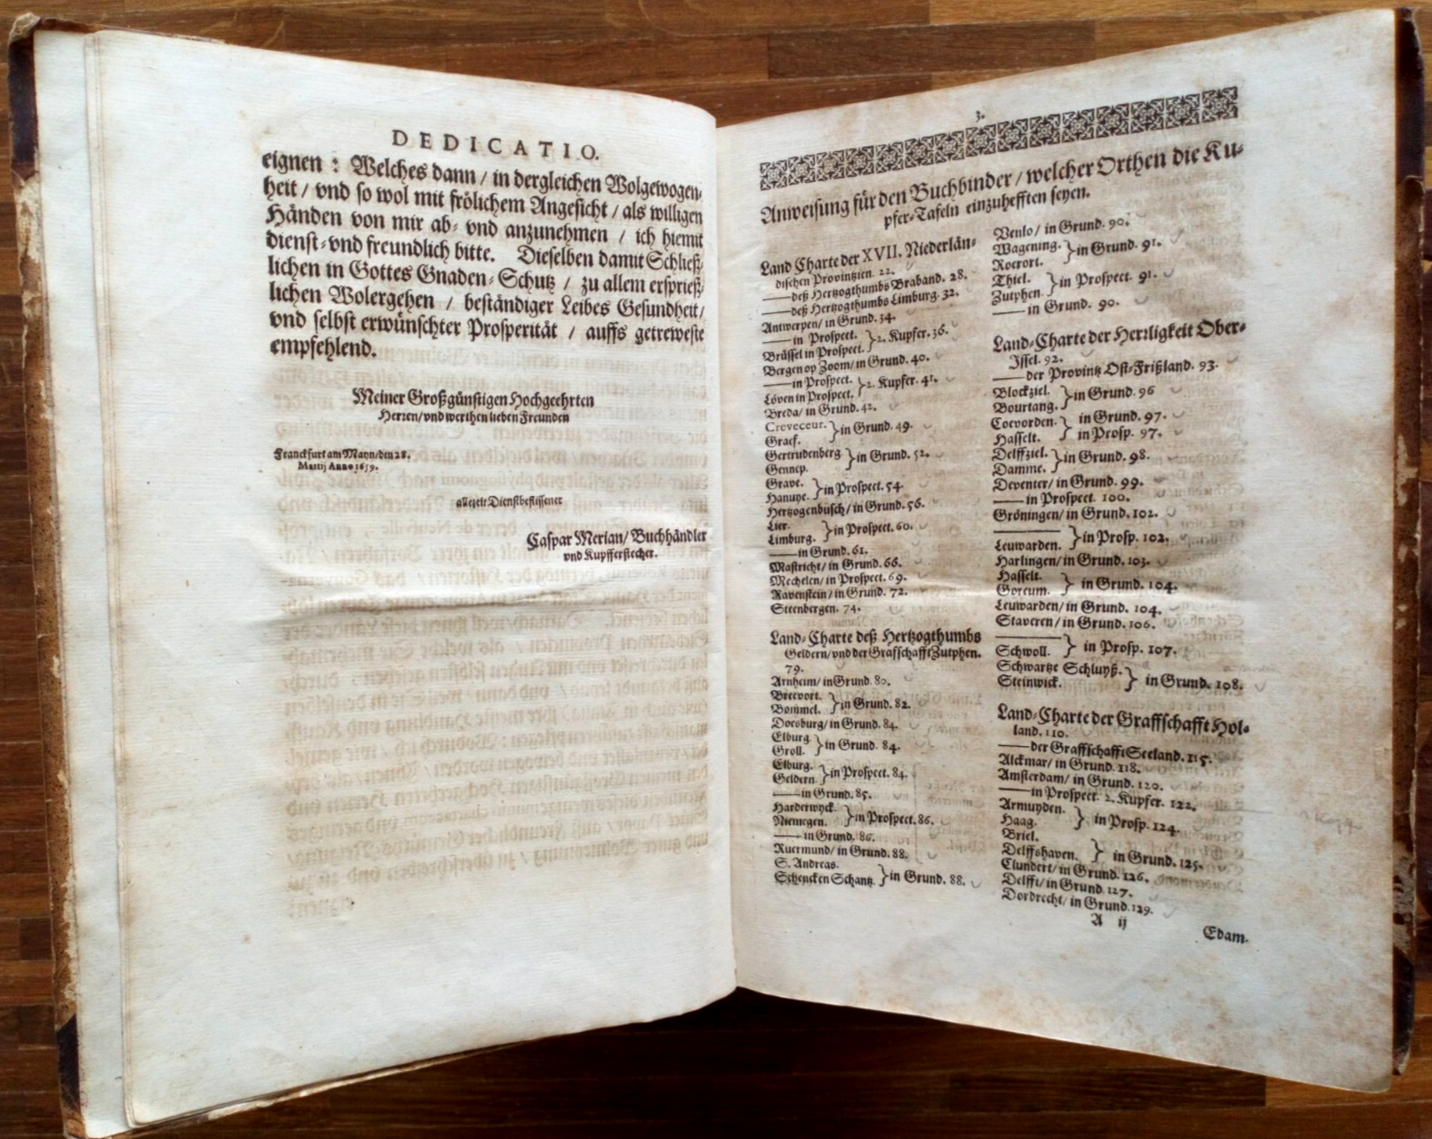 DEDICATIO.
eignen : Welches dann / in dergleichen Wolgewogen-
heit / vnd so wol mit frölichem Angesicht / als willigen
Händen von mir ab- vnd anzunehmen / ich hiemit
dienst-vnd freundlich bitte. Dieselben damit Schließ-
lichen in Gottes Gnaden-Schutz / zu allem ersprieß-
lichen Wolergehen / beständiger Leibes Gesundheit/
vnd selbst erwünschter Prosperität / auffs getreweste
empfehlend.
Meiner Großgünstigen Hochgeehrten
Herren/vnd werthen lieben Freunden
Franckfurt am Mayn/den 28.
Martij Anno 1659.
allezeit Dienstbeflissener
Caspar Merian/ Buchhändler
vnd Kupfferstecher.
3.
Anweisung für den Buchbinder / welcher Orthen die Ku-
pfer-Tafeln einzuhefften seyen.
Land Charte der XVII. Niederlän-
dischen Provintzien. 22.
—— deß Hertzogthumbs Braband. 28.
—— deß Hertzogthumbs Limburg. 32.
Antwerpen/ in Grund. 34.
—— in Prospect. }2. Kupfer. 36.
Brüssel in Prospect.
Bergen op Zoom/ in Grund. 40.
—— in Prospect. }2. Kupfer. 41.
Löven in Prospect.
Breda/ in Grund. 42.
Crevecœur. }in Grund. 49.
Graef.
Gertrudenberg }in Grund. 52.
Gennep.
Grave. }in Prospect. 54.
Hanuye.
Hertzogenbusch/ in Grund. 56.
Lier. }in Prospect. 60.
Limburg.
—— in Grund. 61.
Mastricht/ in Grund. 66.
Mechelen/ in Prospect. 69.
Ravenstein/ in Grund. 72.
Steenbergen. 74.
Land-Charte deß Hertzogthumbs
Geldern/vnd der Grafschafft Zutphen.
79.
Arnheim/ in Grund. 80.
Brevort. }in Grund. 82.
Bommel.
Doesburg/ in Grund. 84.
Elburg }in Grund. 84.
Groll.
Elburg. }in Prospect. 84.
Geldern.
—— in Grund. 85.
Harderwyck. }in Prospect. 86.
Niemegen.
—— in Grund. 86.
Ruermund/ in Grund. 88.
S. Andreas.
Schencken Schantz. }in Grund. 88.
Venlo / in Grund. 90.
Wagening. }in Grund. 91.
Roerort.
Thiel. }in Prospect. 91.
Zutphen.
—— in Grund. 90.
Land-Charte der Herrligkeit Ober-
Issel. 92.
—— der Provintz Ost-Frißland. 93.
Blockziel. }in Grund. 96
Bourtang.
Coevorden. } in Grund. 97.
Hasselt. in Prosp. 97.
Delffziel. }in Grund. 98.
Damme.
Deventer/ in Grund. 99.
—— in Prospect. 100.
Gröningen/ in Grund. 102.
—— }in Prosp. 102.
Leuwarden.
Harlingen/ in Grund. 103.
Hasselt. } in Grund. 104.
Gorcum.
Leuwarden/ in Grund. 104.
Staveren/ in Grund. 106.
—— } in Prosp. 107.
Schwoll.
Schwartze Schluyß. } in Grund. 108.
Steinwick.
Land-Charte der Graffschafft Hol-
land. 110.
—— der Graffschafft Seeland. 115.
Alckmar/ in Grund. 118.
Amsterdam/ in Grund. 120.
—— in Prospect. 2. Kupfer. 122.
Armuyden. } in Prosp. 124.
Haag.
Briel. } in Grund. 125.
Delffshaven.
Clundert/ in Grund. 126.
Delfft/ in Grund. 127.
Dordrecht/ in Grund. 129.
A ij
Edam.